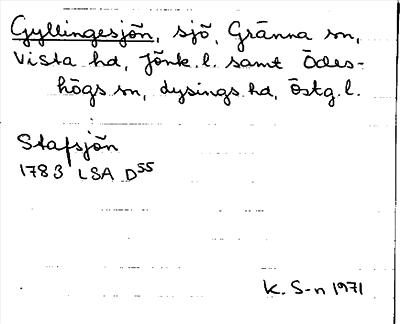 Gyllingesjön, sjö, Gränna sn,
Vista hd, Jönk. l. samt Ödes-
högs sn, Lysings hd, Östg. l.
Stafsjön
1783 LSA D55
K. S-n 1971